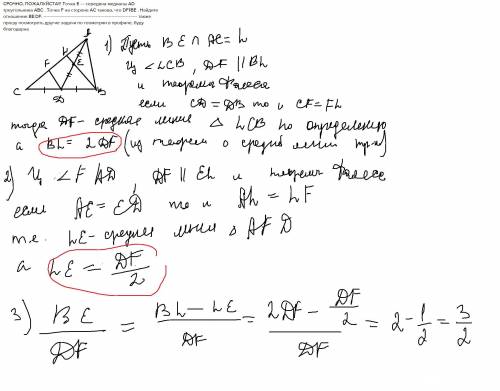 СРОЧНО, ПОЖАЛУЙСТА!!! Точка E — середина медианы AD
треугольника ABC . Точка F на стороне AC такова, что DF||BE . Найдите
отношение BE:DF. также
прошу посмотреть другие задачи по геометрии в профиле, буду
благодарна
A
L
F
E
C
D
B
1) Пусть BE ∩ AC = L
Из ∠LCB, DF || BL
и теоремы Фалеса
если CD = DB то и CF = FL
тогда DF - средняя линия △ LCB по определению
а BL = 2DF (из теоремы о средней линии тр-ка)
2) Из ∠FAD, DF || EL и теоремы Фалеса
если AE = ED то и AL = LF
т.е. LE - средняя линия △ AFD
а LE = DF/2
3) BE/DF = BL - LE/DF = 2DF - DF/2/DF = 2 - 1/2 = 3/2